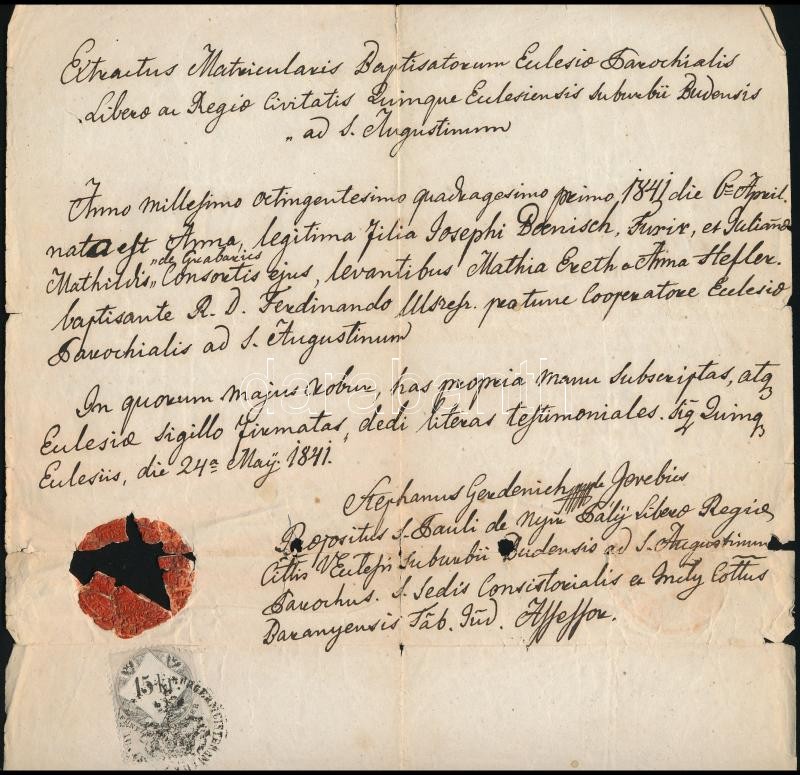 Extractus Matricularis Baptisatorum Eulesiæ Parochialis
Liberæ ac Regiæ Civitatis Quinque Eulesiensis suburbii Budensis
„ ad S. Augustinum
Anno millesimo octingentesimo quadragesimo primo, 1841 die 6a April.
nata est Anna, legitima filia Josephi Boenisch, Furir, et Julianæ
„de Grabarics
Mathildis „ Consortis ejus, levantibus Mathia Ereth e Anna Hefler.
baptisante R. D. Ferdinando pratunc Cooperatore Eulesiæ
Parochialis ad S. Augustinum
In quorum majus robur, has propria manu subscriptas, atq
Eulesiæ sigillo firmatas, dedi literas testimoniales. Sig Quinq
Eulesiis, die 24a Maÿ. 1841.
Stephanus Gerdenich de Jerebics
Præpositus S. Pauli de Nyir Pályi Liberæ Regiæ
Cittis VEulesis Suburbii Budensis ad S. Augustinum
Parochus. S. Sedis Consistorialis et Inclÿ Cottus
Baranyensis Tab. Jud. Assessor.
15 kr.
dorebanti